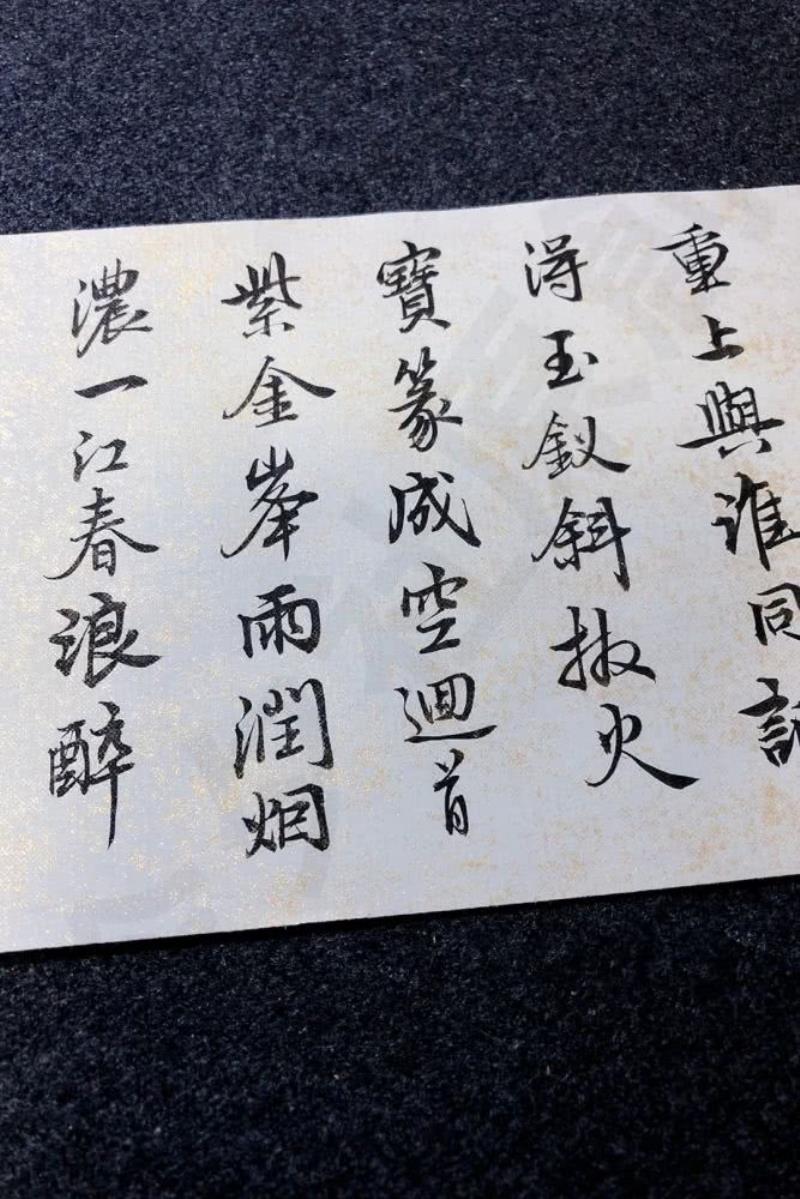 重上與誰同
得玉釵斜撥火
寶篆成空迴首
紫金峯雨潤烟
濃一江春浪醉